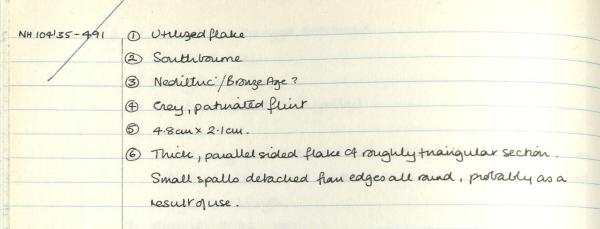 NH 104'35-491 ① Utilized flake
② Southbourne
③ Neolithic/Bronze Age?
④ Grey, patinated flint
⑤ 4.8cm x 2.1cm.
⑥ Thick, parallel sided flake of roughly triangular section.
Small spalls detached from edges all round, probably as a
result of use.